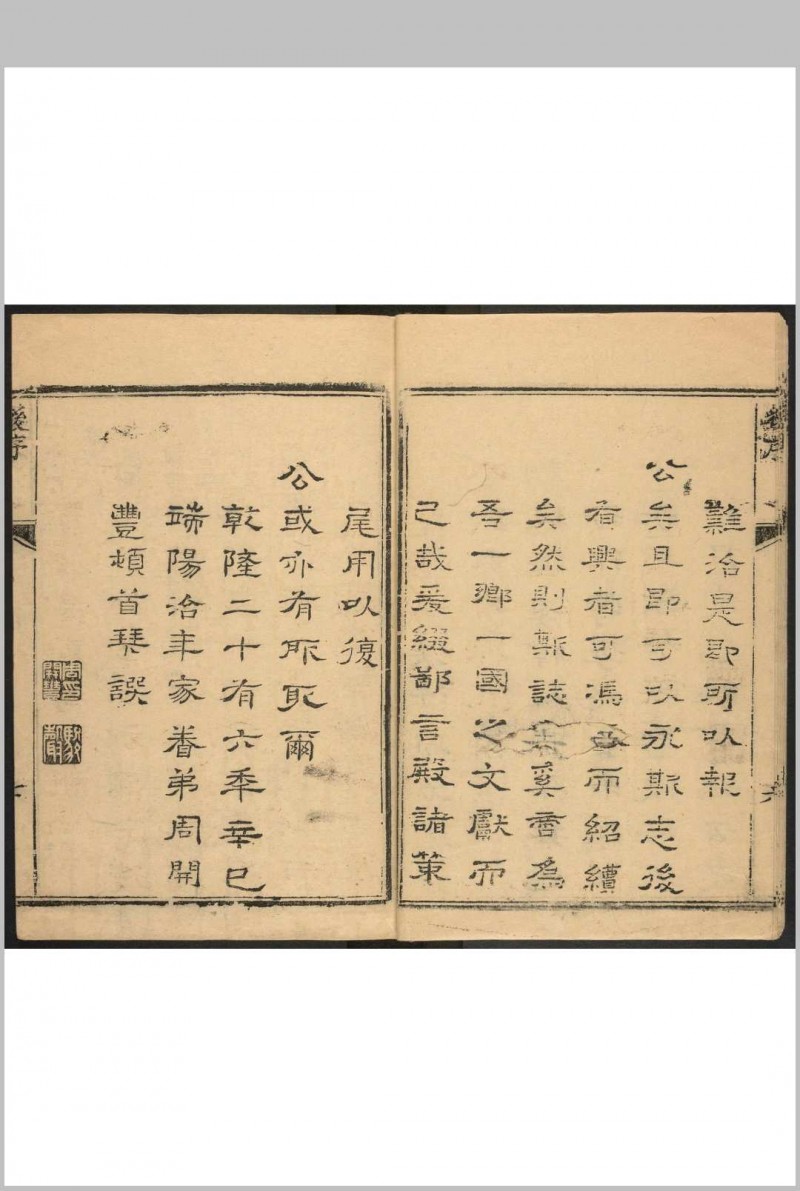 難治是即所以報
公矣且即可以永斯志後
有興者可馮而紹續
矣然則斯誌奚啻為
吾一鄉一國之文獻而
已哉爰綴鄙言殿諸策
尾用以復
公或亦有所取爾
乾隆二十有六年辛巳
端陽治年家眷弟周開
豐頓首拜譔
後序